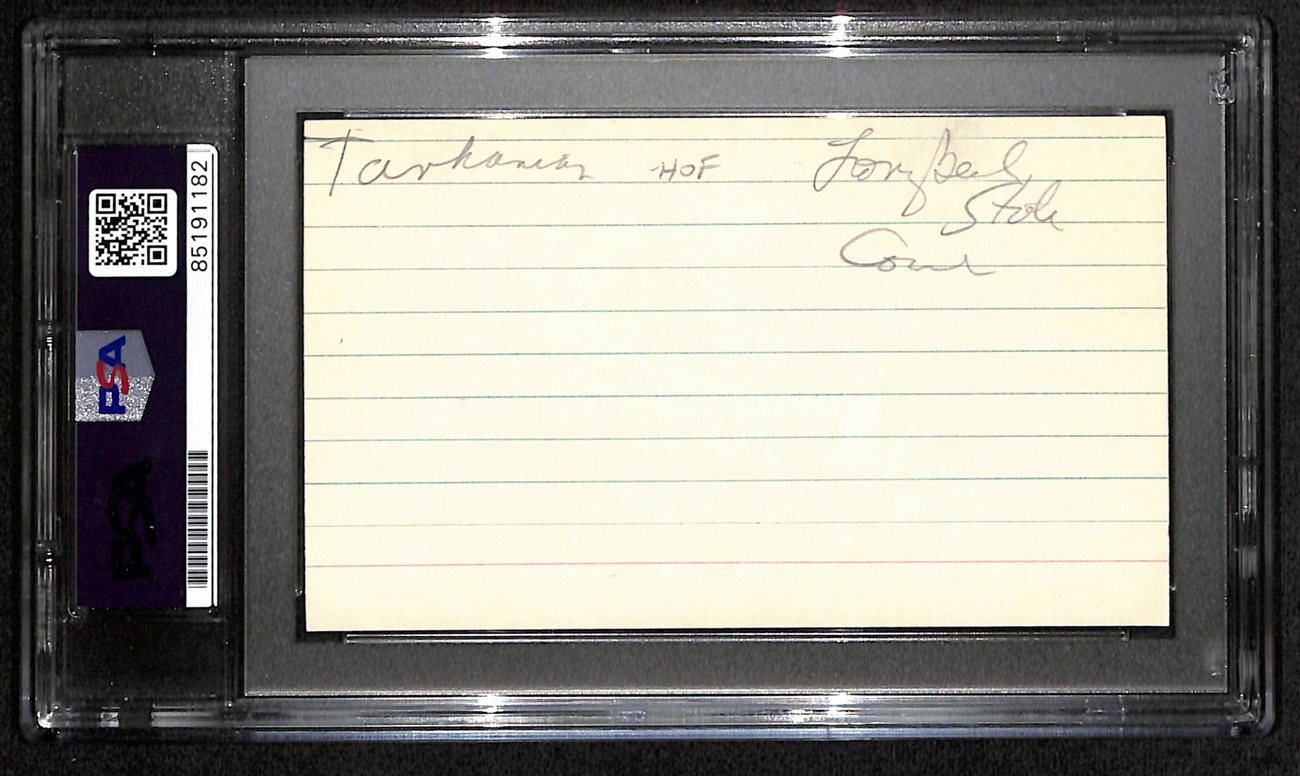 Tarkanian HOF Long Beach
State
85191182
PSA
PSA